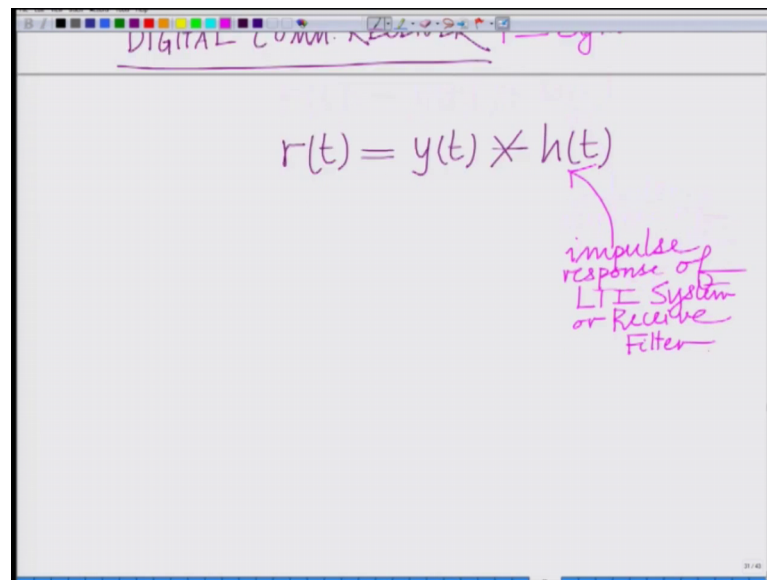 DIGITAL COMM. RECEIVER
r(t) = y(t) * h(t)
impulse
response of
LTI System
or Receive
Filter
31 / 40